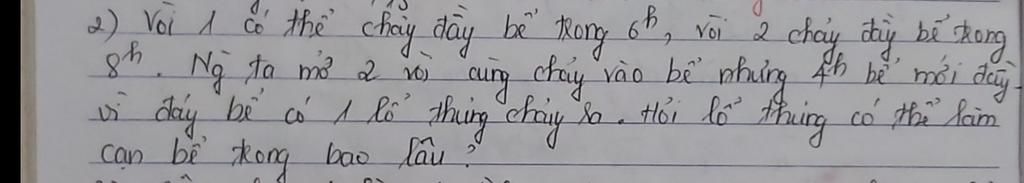 2) Vòi 1 có thể chảy đầy bể trong 6h, vòi 2 chảy đầy bể trong
8h. Ng ta mở 2 vòi cùng chảy vào bể nhưng 4h bể mới đầy
vì đáy bể có 1 lỗ thủng chảy ra. Hỏi lỗ thủng có thể làm
cạn bể trong bao lâu?